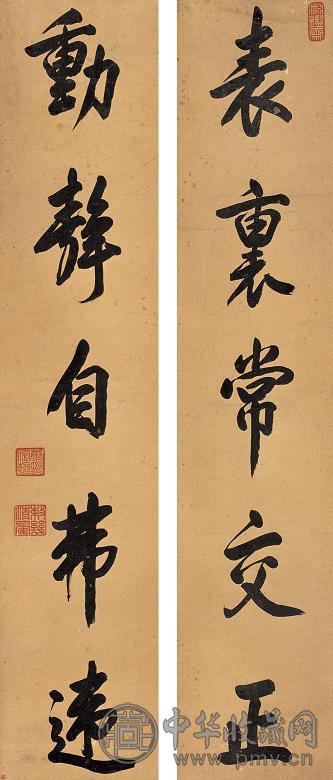 表裏常交正
動靜自弗違
中华收藏网
www.pmv.cn